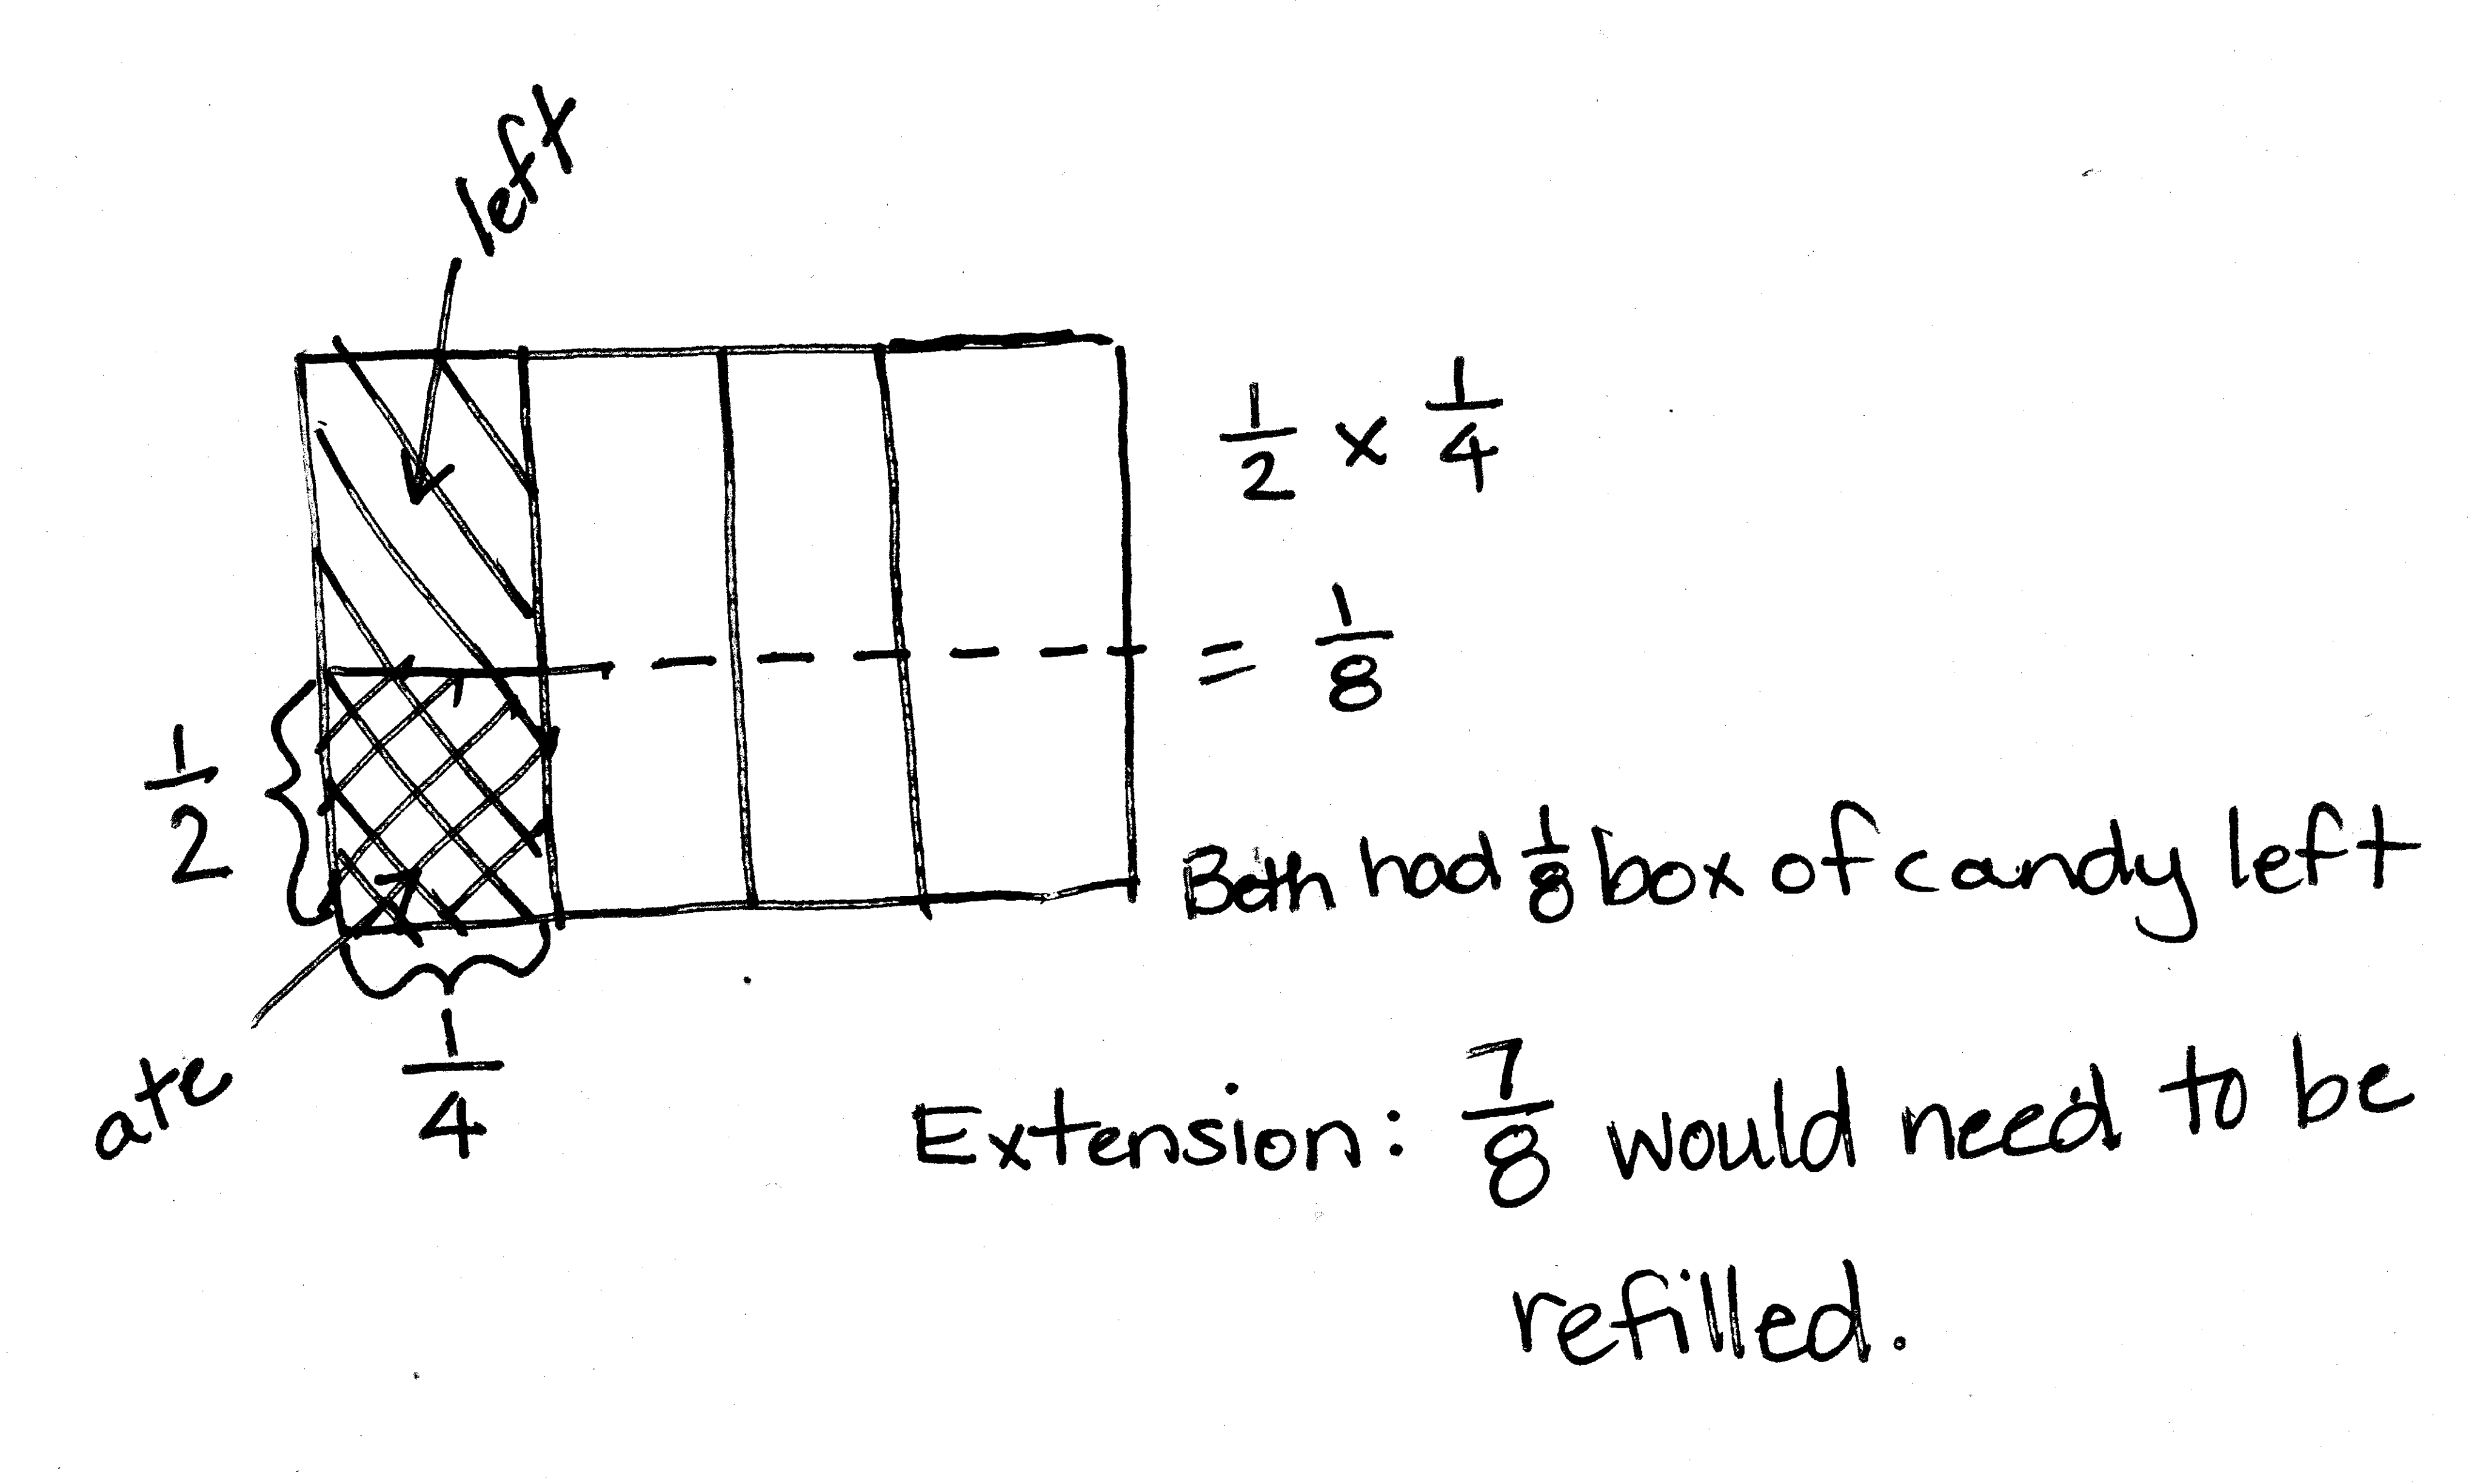 left
1/2 x 1/4
= 1/8
1/2
Both had 1/8 box of candy left
ate
1/4
Extension: 7/8 would need to be
refilled.